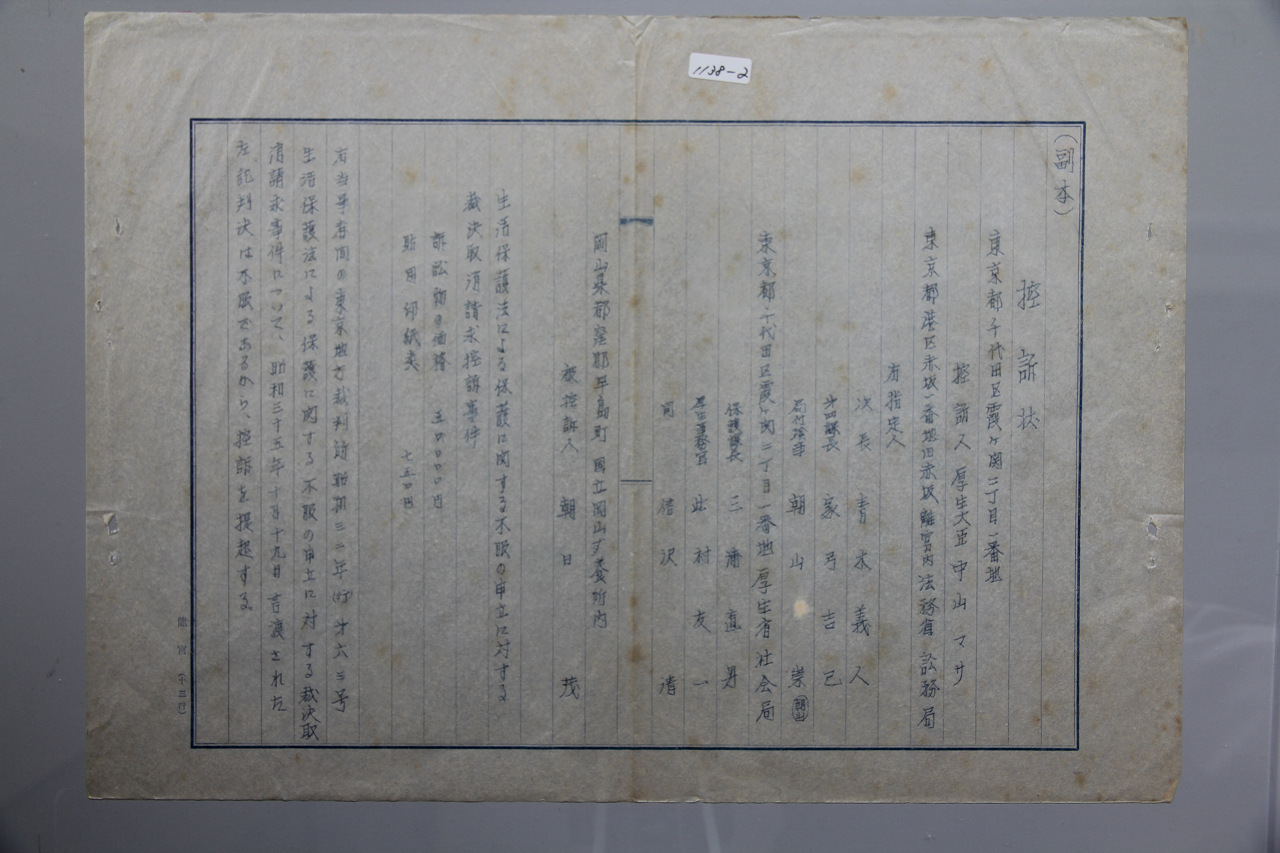 1138-2
(副本)
控訴状
東京都千代田区霞ヶ関二丁目一番地
控訴人 厚生大臣 中山マサ
東京都港区赤坂一番地旧赤坂離宮内法務省訟務局
右指定人
次長 青木義人
第四課長 家弓吉己
局付検事 朝山崇
東京都千代田区霞ヶ関二丁目一番地厚生省社会局
保護課長 三浦直男
厚生事務官 此村友一
同 沢清
岡山県都窪郡早島町 国立岡山療養所内
被控訴人 朝日茂
生活保護法による保護に関する不服の申立に対する
裁決取消請求控訴事件
訴訟物の価格
貼用印紙 七五〇円
右当事者間の東京地方裁判所昭和三二年(行)第六三号
生活保護法による保護に関する不服の申立に対する裁決取
消請求事件について、昭和三十五年十月十九日言渡された
左記判決は不服であるから、控訴を提起する。